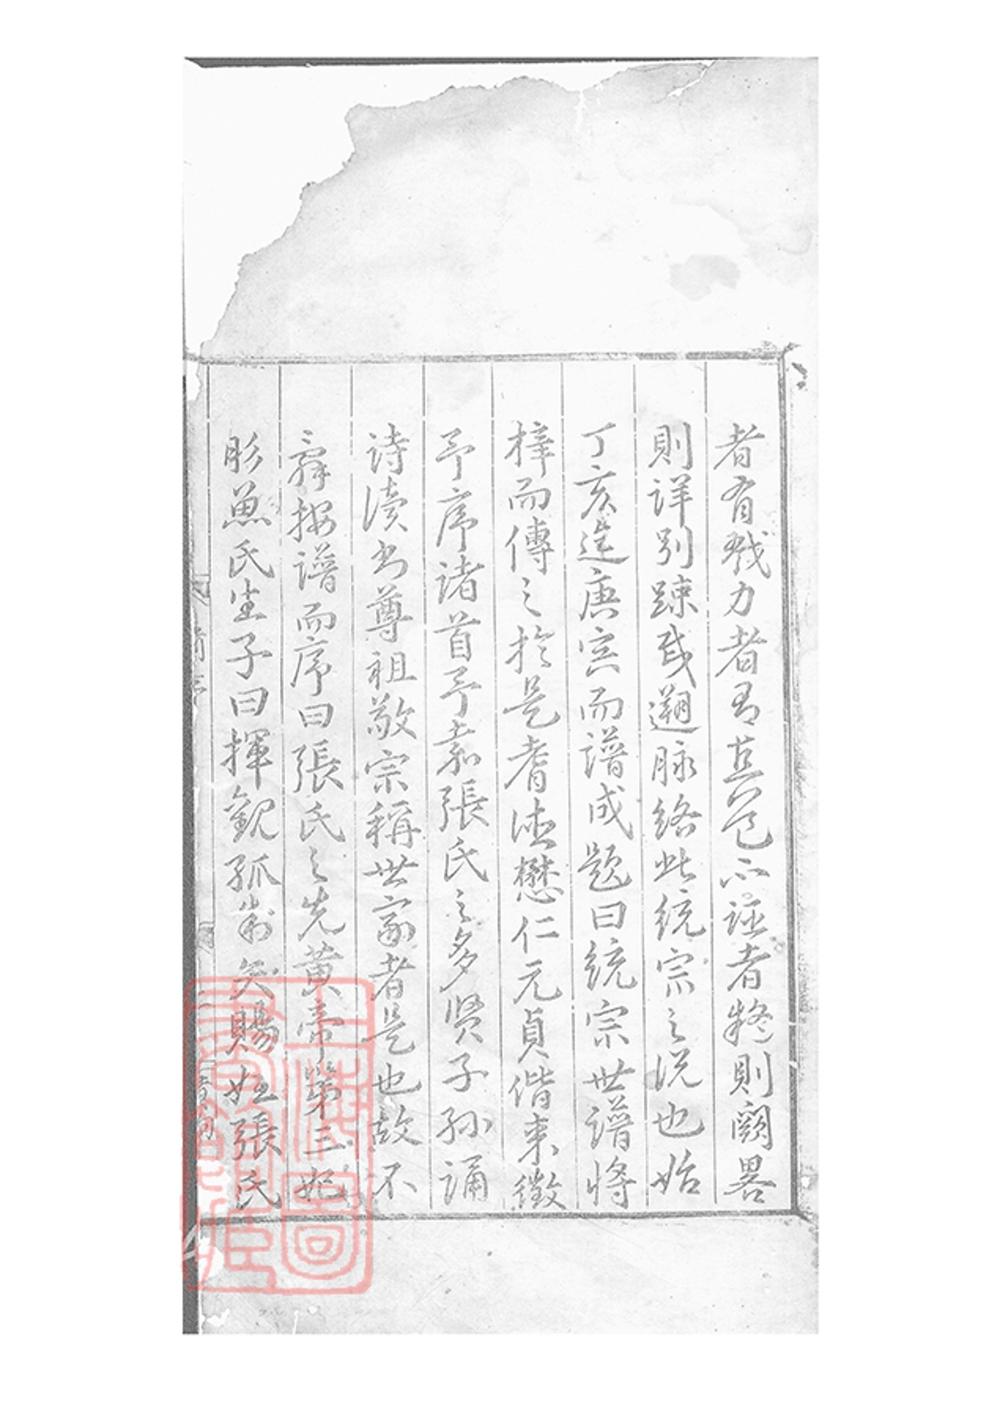 者有戮力者有直筆不誣者終則闕畧
則詳別踈戚遡脉絡此統宗之说也始
丁亥迄庚寅而譜成题曰統宗世譜将
梓而傳之於是耆德懋仁元貞偕来徵
予序諸首予嘉張氏之多贤子孙誦
诗读书尊祖敬宗稱世家者是也故不
辭按譜而序曰張氏之先黄帝第三妃
彤魚氏生子曰揮觀弧制矢賜姓張氏